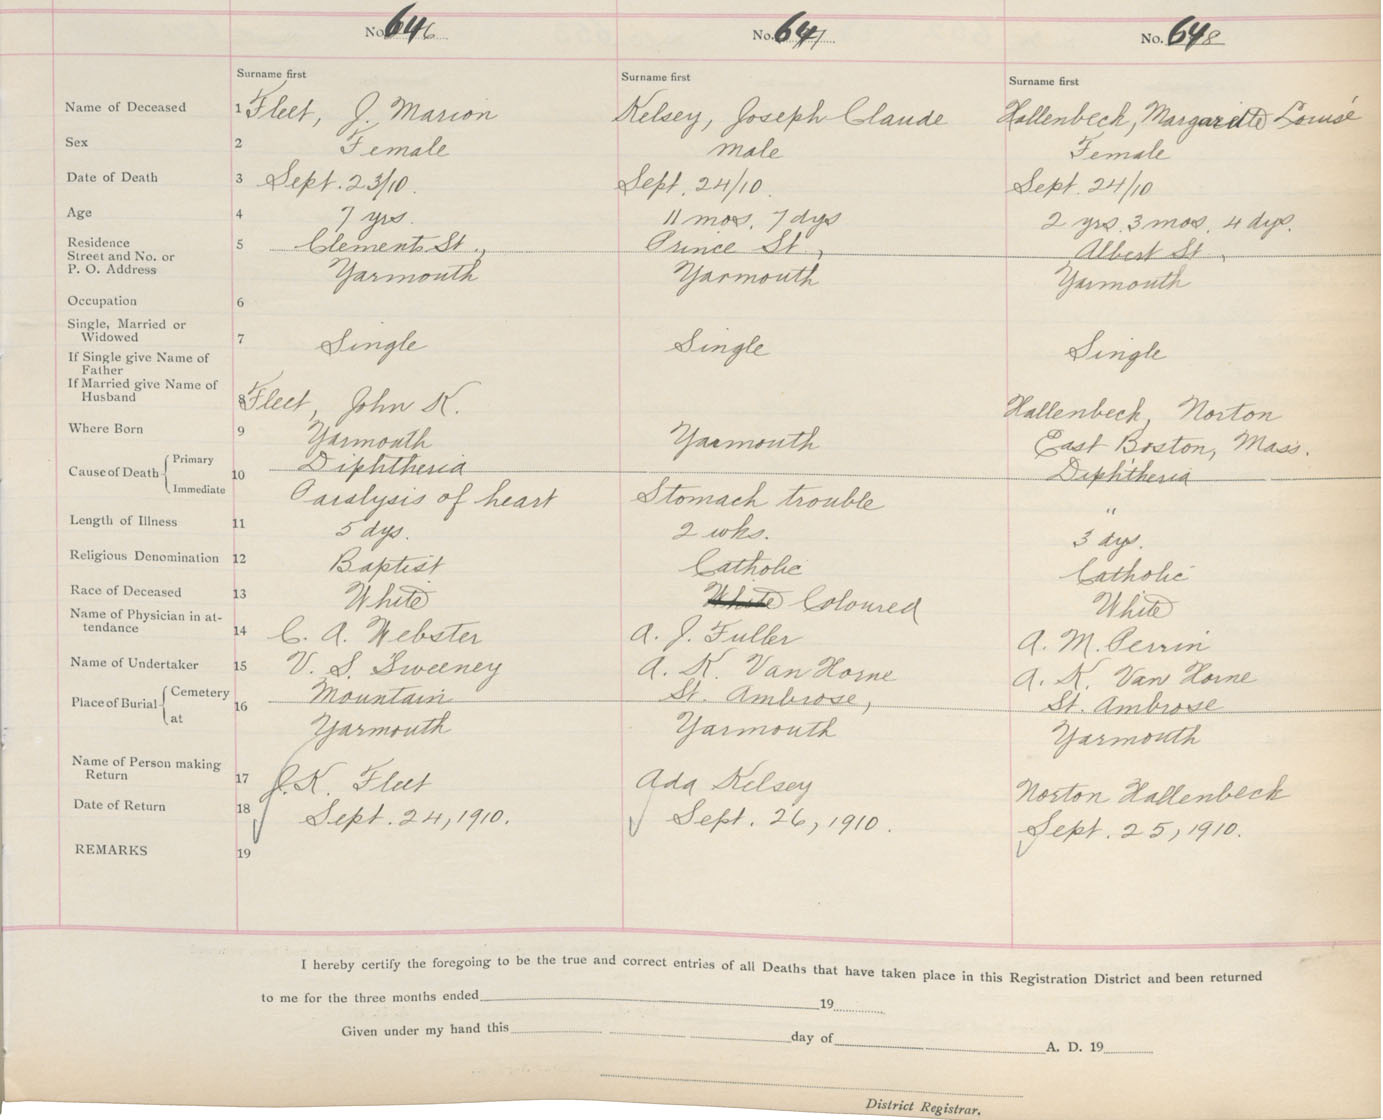 No. 646 No. 647 No. 648
Surname first Surname first Surname first
Name of Deceased 1 Fleet, J. Marion Kelsey, Joseph Claude Hallenbeck, Margarette Louise
Sex 2 Female male Female
Date of Death 3 Sept. 23/10. Sept. 24/10. Sept. 24/10
Age 4 7 yrs. 11 mos. 7 dys 2 yrs. 3 mos. 4 dys.
Residence 5 Clements St., Prince St., Albert St.,
Street and No. or
P. O. Address Yarmouth Yarmouth Yarmouth
Occupation 6
Single, Married or
Widowed 7 Single Single Single
If Single give Name of
Father
If Married give Name of
Husband 8 Fleet, John K. Hallenbeck, Norton
Where Born 9 Yarmouth Yarmouth East Boston, Mass.
Cause of Death Primary 10 Diphtheria Diphtheria
Immediate Paralysis of heart Stomach trouble "
Length of Illness 11 5 dys. 2 wks. 3 dys.
Religious Denomination 12 Baptist Catholic Catholic
Race of Deceased 13 White White Coloured White
Name of Physician in at-
tendance 14 C. A. Webster A. J. Fuller A. M. Perrin
Name of Undertaker 15 V. S. Sweeney A. K. Van Horne A. K. Van Horne
Place of Burial Cemetery 16 Mountain St. Ambrose, St. Ambrose
at Yarmouth Yarmouth Yarmouth
Name of Person making
Return 17 J. K. Fleet Ada Kelsey Norton Hallenbeck
Date of Return 18 Sept. 24, 1910. Sept. 26, 1910. Sept. 25, 1910.
REMARKS 19
I hereby certify the foregoing to be the true and correct entries of all Deaths that have taken place in this Registration District and been returned
to me for the three months ended 19
Given under my hand this day of A. D. 19
District Registrar.